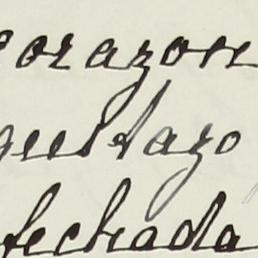 corazon
quitazo
fechada